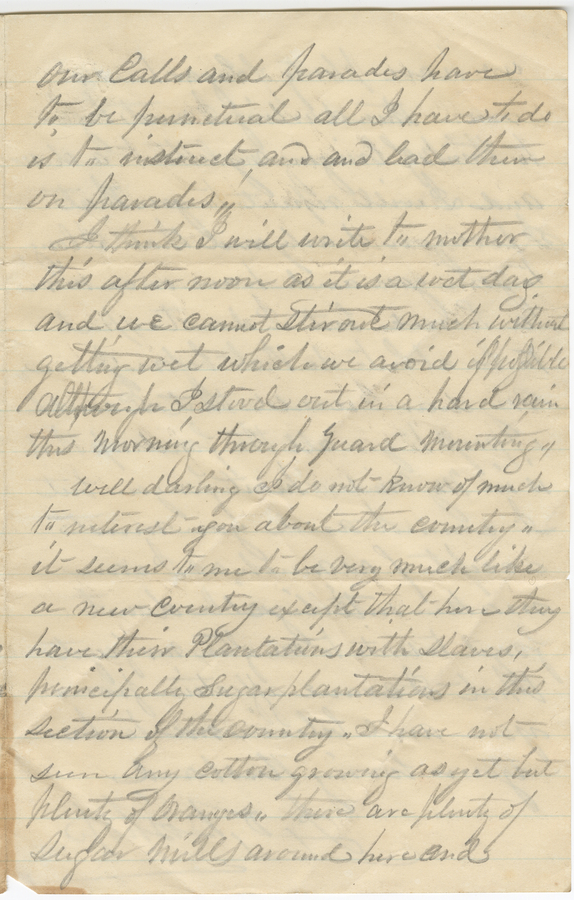 our Calls and parades have
to be punctual all I have to do
is to instruct and and lead them
on parades,,
I think I will write to mother
this after noon as it is a wet day
and we cannot stir out much without
getting wet which we avoid if possible
although I stood out in a hard rain
this Morning through Guard Mounting,,
well darling I do not know of much
to interest you about the country,,
it seems to me to be very much like
a new Country except that here they
have their Plantations with slaves,
principally Sugar plantations in this
section of the country,, I have not
seen any cotton growing as yet but
plenty of Oranges,, there are plenty of
Sugar Mills around here and